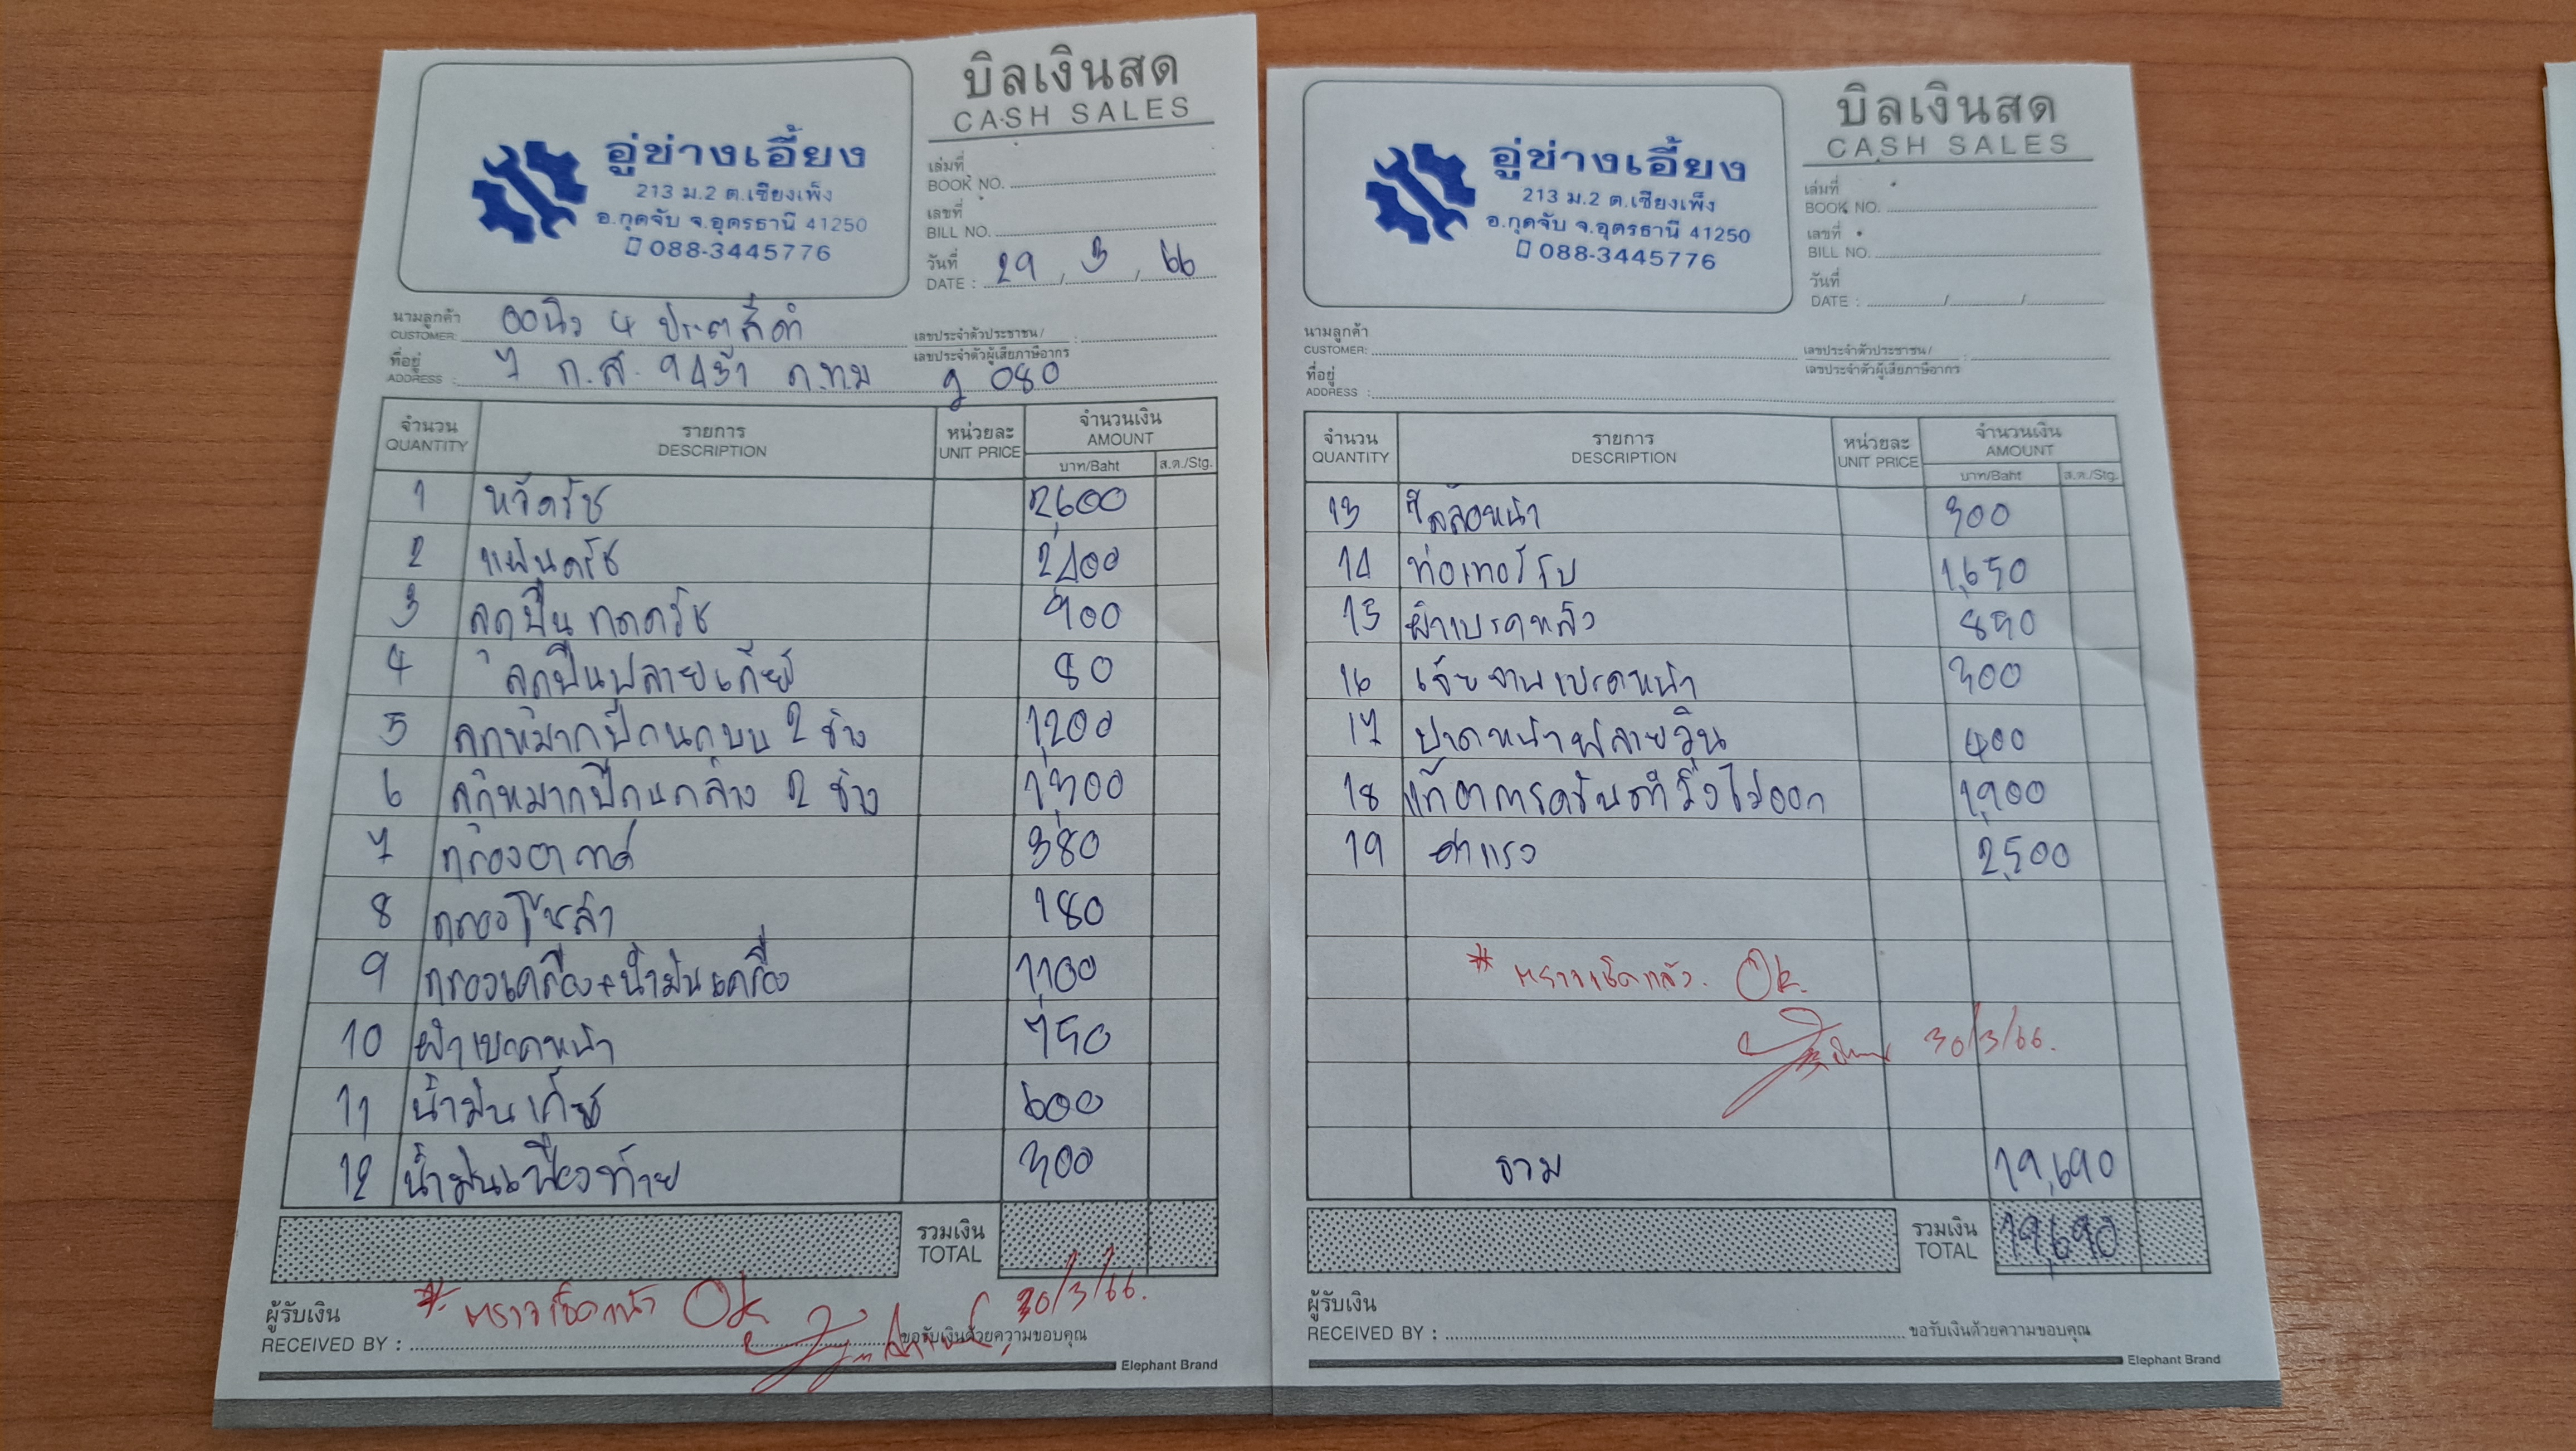 บิลเงินสด
CASH SALES
อู่ช่างเอี้ยง
213 ม.2 ต.เชียงเพ็ง
อ.กุดจับ จ.อุดรธานี 41250
088-3445776
เล่มที่
BOOK NO.
เลขที่
BILL NO.
วันที่
DATE : 29 / 3 / 66
นามลูกค้า
CUSTOMER: ออนิว 4 ประตูสีดำ
เลขประจำตัวประชาชน/
เลขประจำตัวผู้เสียภาษีอากร
ที่อยู่
ADDRESS : 7 ก.ส. 9431 ก.ท.ม 080
จำนวน รายการ หน่วยละ จำนวนเงิน
QUANTITY DESCRIPTION UNIT PRICE AMOUNT
บาท/Baht ส.ต./Stg.
1 หวีครัช 2,600
2 แผ่นครัช 2,400
3 ลูกปืนกดครัช 900
4 ลูกปืนปลายเกียร์ 80
5 ลูกหมากปีกนกบน 2 ข้าง 1,200
6 ลูกหมากปีกนกล่าง 2 ข้าง 1,300
7 กรองอากาศ 380
8 กรองโซล่า 180
9 กรองเครื่อง+น้ำมันเครื่อง 1,100
10 ผ้าเบรคหน้า 750
11 น้ำมันเกียร์ 600
12 น้ำมันเฟืองท้าย 300
รวมเงิน
TOTAL
* ตรวจเช็คแล้ว Ok 30/3/66.
ผู้รับเงิน
RECEIVED BY : ขอรับเงินด้วยความขอบคุณ
Elephant Brand
บิลเงินสด
CASH SALES
อู่ช่างเอี้ยง
213 ม.2 ต.เชียงเพ็ง
อ.กุดจับ จ.อุดรธานี 41250
088-3445776
เล่มที่
BOOK NO.
เลขที่
BILL NO.
วันที่
DATE : / /
นามลูกค้า
CUSTOMER:
เลขประจำตัวประชาชน/
เลขประจำตัวผู้เสียภาษีอากร
ที่อยู่
ADDRESS :
จำนวน รายการ หน่วยละ จำนวนเงิน
QUANTITY DESCRIPTION UNIT PRICE AMOUNT
บาท/Baht ส.ต./Stg.
13 ซีลล้อหน้า 300
14 ท่อเทอร์โบ 1,650
15 ผ้าเบรคหลัง 850
16 เจียจานเบรคหน้า 300
17 ปาดหน้าฟลายวีน 400
18 แก้อาการควันดำวิ่งไม่ออก 1,900
19 ค่าแรง 2,500
* ตรวจเช็คแล้ว. Ok.
30/3/66.
รวม 19,690
รวมเงิน
TOTAL 19,690
ผู้รับเงิน
RECEIVED BY : ขอรับเงินด้วยความขอบคุณ
Elephant Brand